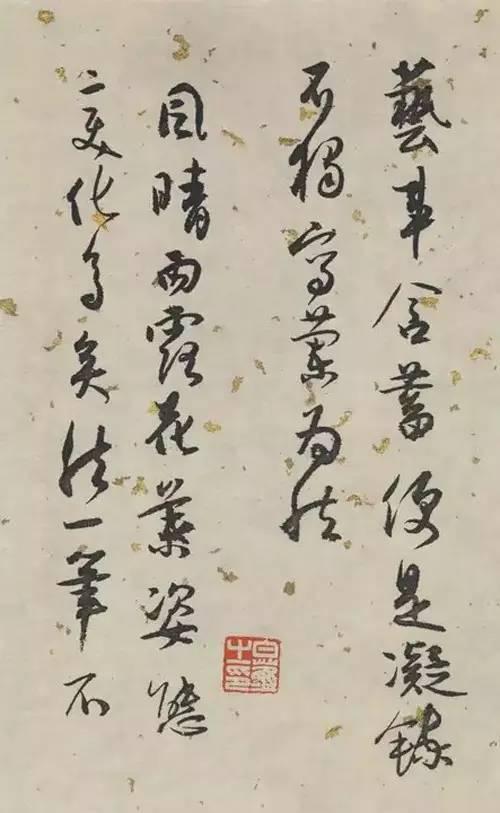 藝事含蓄便是凝鍊
不獨寫蘭為然
風晴雨露花葉姿態
變化多矣然一筆不